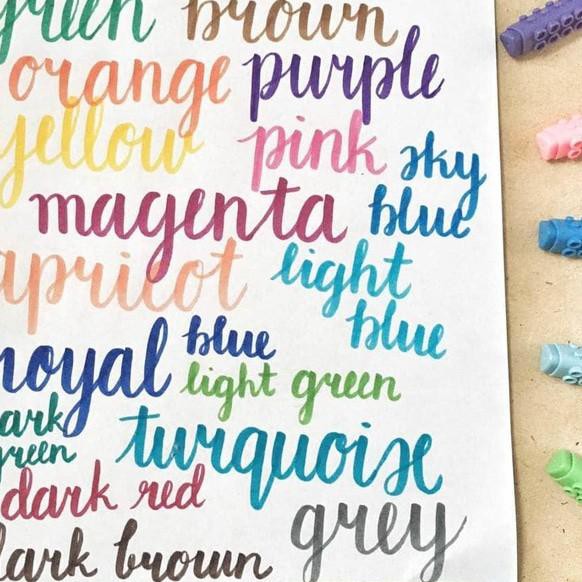 green brown
orange purple
yellow pink sky
magenta blue
apricot light
blue
royal blue
light green
dark
green turquoise
dark red
grey
dark brown